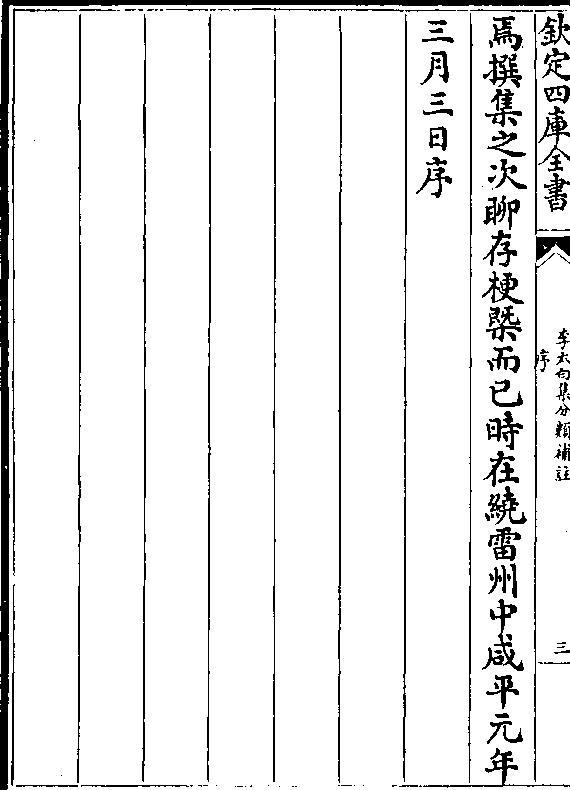 欽定四庫全書
李太白集分類補註
序
三
焉撰集之次聊存梗槩而已時在繞霤州中咸平元年
三月三日序